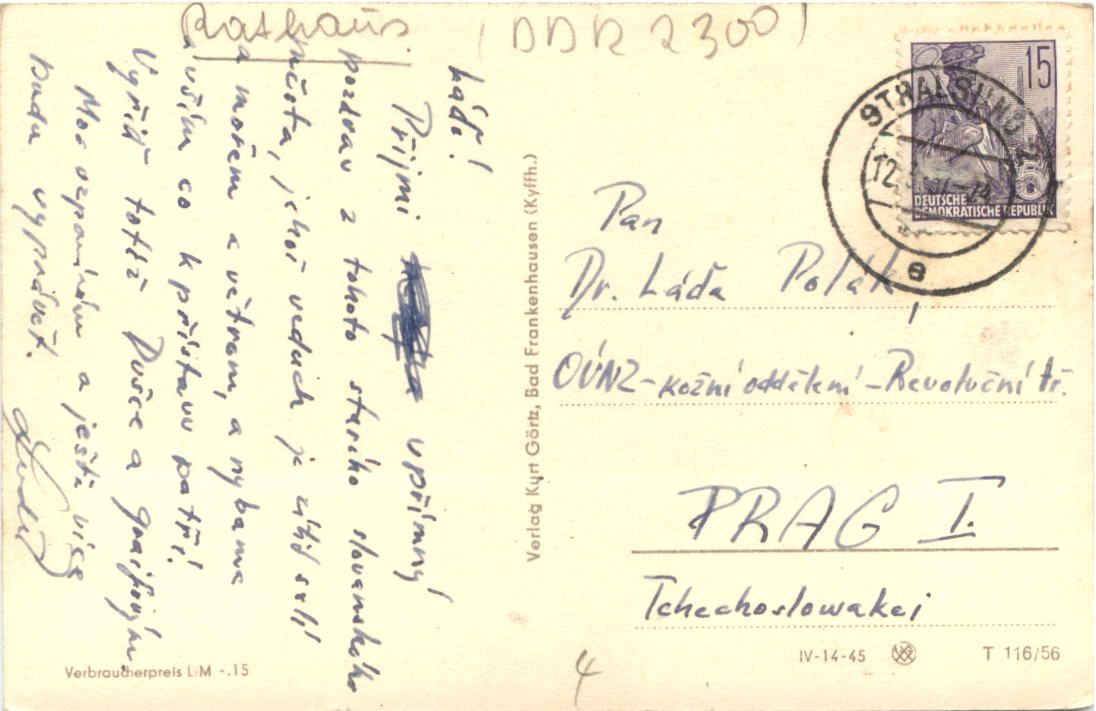 Rathaus (DDR 2300)
Láďo!
Přijmi upřímný
pozdrav z tohoto starého slovanského
města, jehož vzduch je cítit solí
a mořem a větrem, a rybama
a vším co k přístavu patří!
Vyřiď totéž Dušce a
Moc vzpomínám a ještě více
budu vyprávět.
Verbraucherpreis DM -.15
Verlag Kurt Görtz, Bad Frankenhausen (Kyffh.)
15
DEUTSCHE
DEMOKRATISCHE REPUBLIK
STRALSUND
e
Pan
Dr. Láďa Polák
OÚNZ - kožní oddělení - Revoluční tř.
PRAG I.
Tchechoslowakei
IV-14-45 T 116/56
4